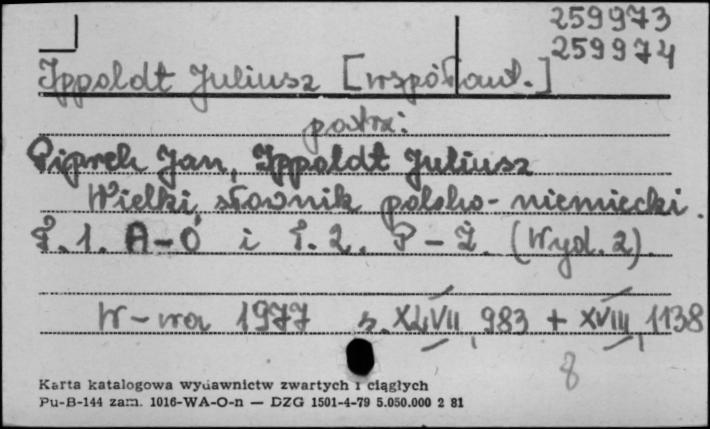 259973
259974
Ippoldt Juliusz [współaut.]
patrz:
Piprek Jan, Ippoldt Juliusz
Wielki słownik polsko-niemiecki.
T. 1. A-Ó i T. 2. P-Ż. (Wyd. 2).
W-wa 1977 s. XLVII, 983 + XVIII, 1138
8
Karta katalogowa wydawnictw zwartych i ciągłych
Pu-B-144 zam. 1016-WA-O-n — DZG 1501-4-79 5.050.000 2 81